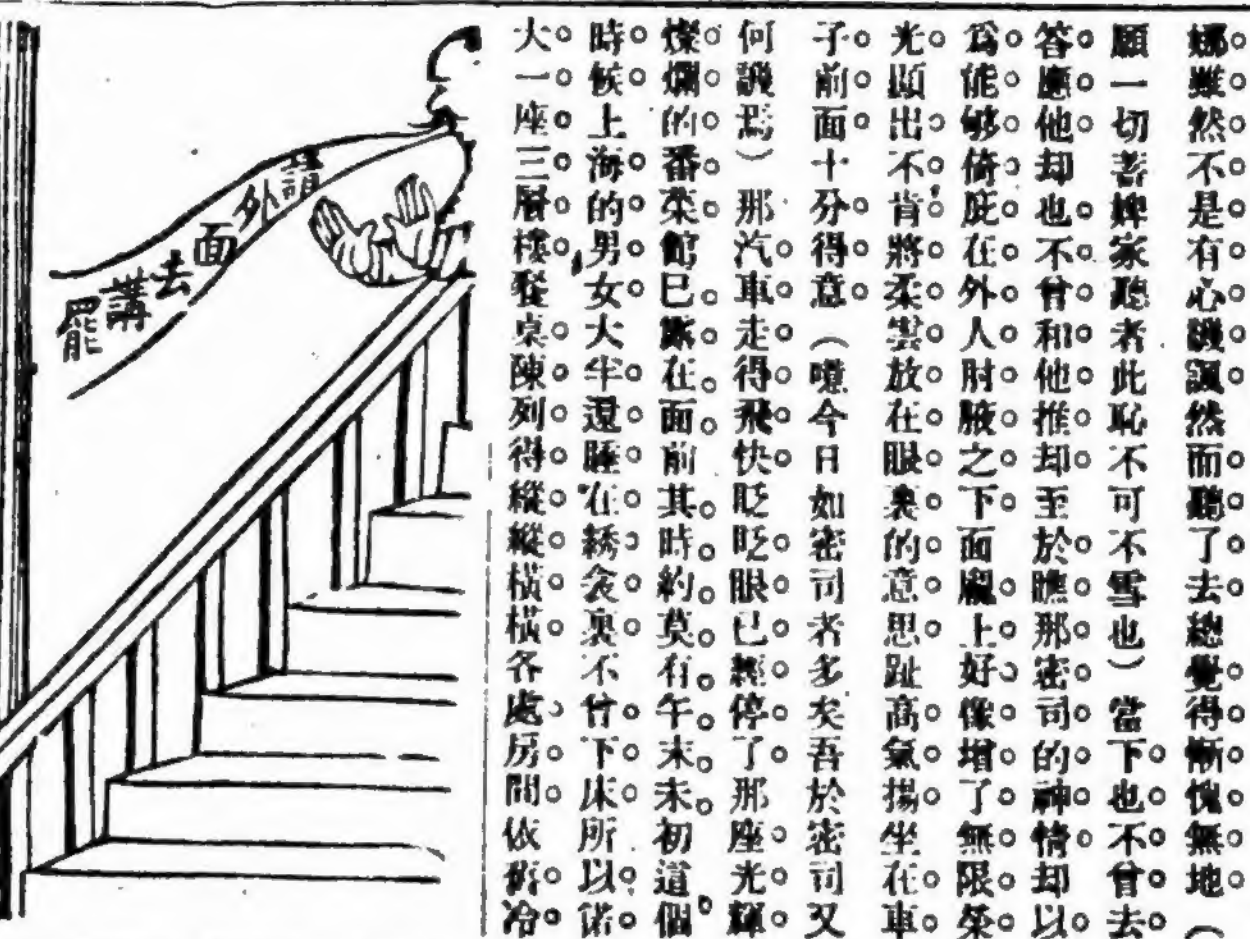 娜雖然不是有心譏諷然而聽了去總覺得慚愧無地（
願一切婢家聽者此恥不可不雪也）當下也不曾去
答應他却也不曾和他推却至於瞧那密司的神情却以
爲能够倚庇在外人肘腋之下面龐上好像增了無限榮
光顯出不肯將柔雲放在眼裏的意思趾高氣揚坐在車
子前面十分得意（噫今日如密司者多矣吾於密司又
何譏焉）那汽車走得飛快眨眨眼已經停了那座光輝
燦爛的番菜館已在面前其時約莫有午末未初這個
時候上海的男女大半還睡在綉衾裏不曾下床所以諾
大一座三層樓餐桌陳列得縱縱橫橫各處房間依舊冷
請外面去講罷